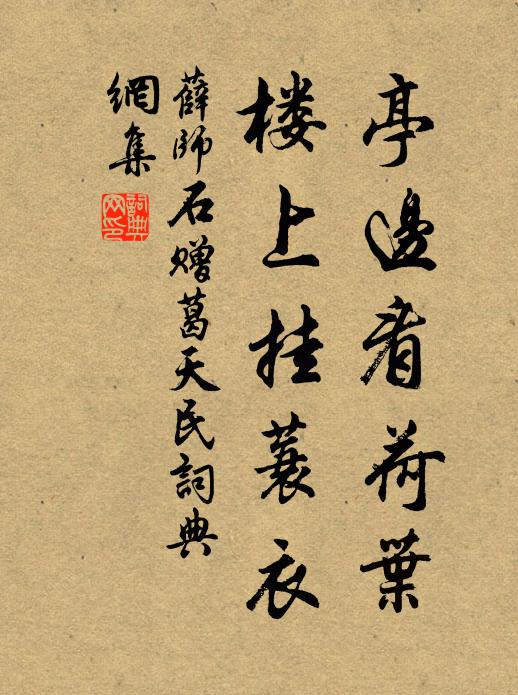 亭邊看荷葉
楼上挂蓑衣
薛師石贈葛天民詞典
網集
詞典网印